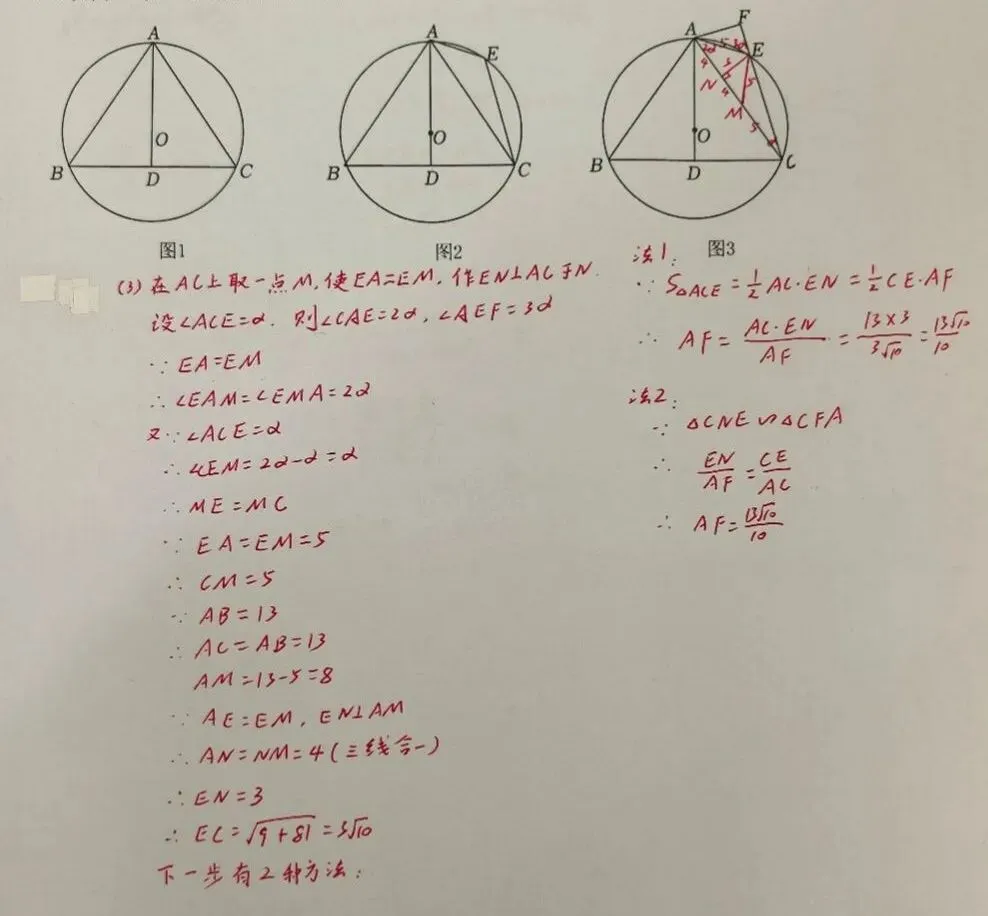 A
O
B
D
C
图1
A
E
O
B
D
C
图2
F
A
E
2α
5
3α
4
3
N
4
5
M
5
α
O
B
D
C
图3
(3) 在AC上取一点M,使EA=EM,作EN⊥AC于N.
设∠ACE=α. 则∠CAE=2α,∠AEF=3α
∵ EA=EM
∴ ∠EAM=∠EMA=2α
又∵∠ACE=α
∴ ∠CEM=2α-α=α
∴ ME=MC
∵ EA=EM=5
∴ CM=5
∵ AB=13
∴ AC=AB=13
AM=13-5=8
∵ AE=EM, EN⊥AM
∴ AN=NM=4(三线合一)
∴ EN=3
∴ EC=√(9+81)=3√10
下一步有2种方法:
法1:
∵ S△ACE=1/2 AC·EN=1/2 CE·AF
∴ AF=AC·EN/AF=13×3/3√10=13√10/10
法2:
∵ △CNE∽△CFA
∴ EN/AF=CE/AC
∴ AF=13√10/10